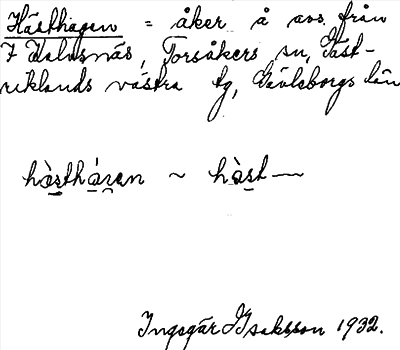 Hästhagen = åker å avs. från
7 Kalvsnäs, Torsåkers sn, Gäst-
riklands västra tg, Gävleborgs län
hàsthágan ~ hàst—
Ingegär Isaksson 1932.